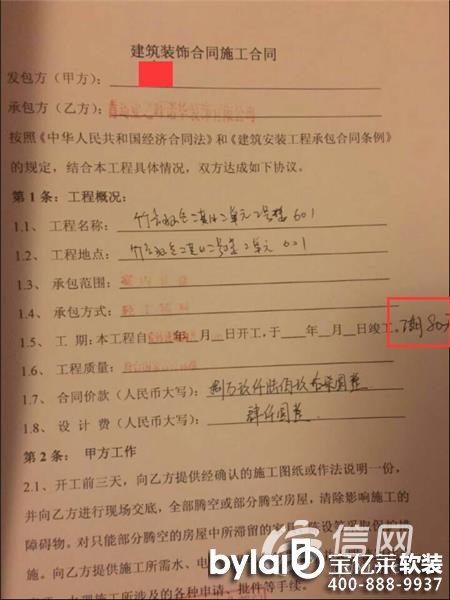 建筑装饰合同施工合同
发包方（甲方）：
承包方（乙方）：
按照《中华人民共和国经济合同法》和《建筑安装工程承包合同条例》
的规定，结合本工程具体情况，双方达成如下协议。
第 1 条：工程概况：
1.1、 工程名称： 2单元 601
1.2、 工程地点： 2单元 601
1.3、 承包范围：
1.4、 承包方式：
1.5、 工 期：本工程自 年 月 日开工，于 年 月 日竣工。工期80天
1.6、 工程质量：
1.7、 合同价款（人民币大写）：
1.8、 设 计 费（人民币大写）： 肆仟圆整
第 2 条： 甲方工作
2.1、开工前三天，向乙方提供经确认的施工图纸或作法说明一份，
并向乙方进行现场交底，全部腾空或部分腾空房屋，清除影响施工的
障碍物。对只能部分腾空的房屋中所滞留的家具、陈设等采取保护措
施。向乙方提供施工所需水、电
施工所涉及的各种申请、批件等手续。
信网
bylai 宝亿莱软装
400-888-9937